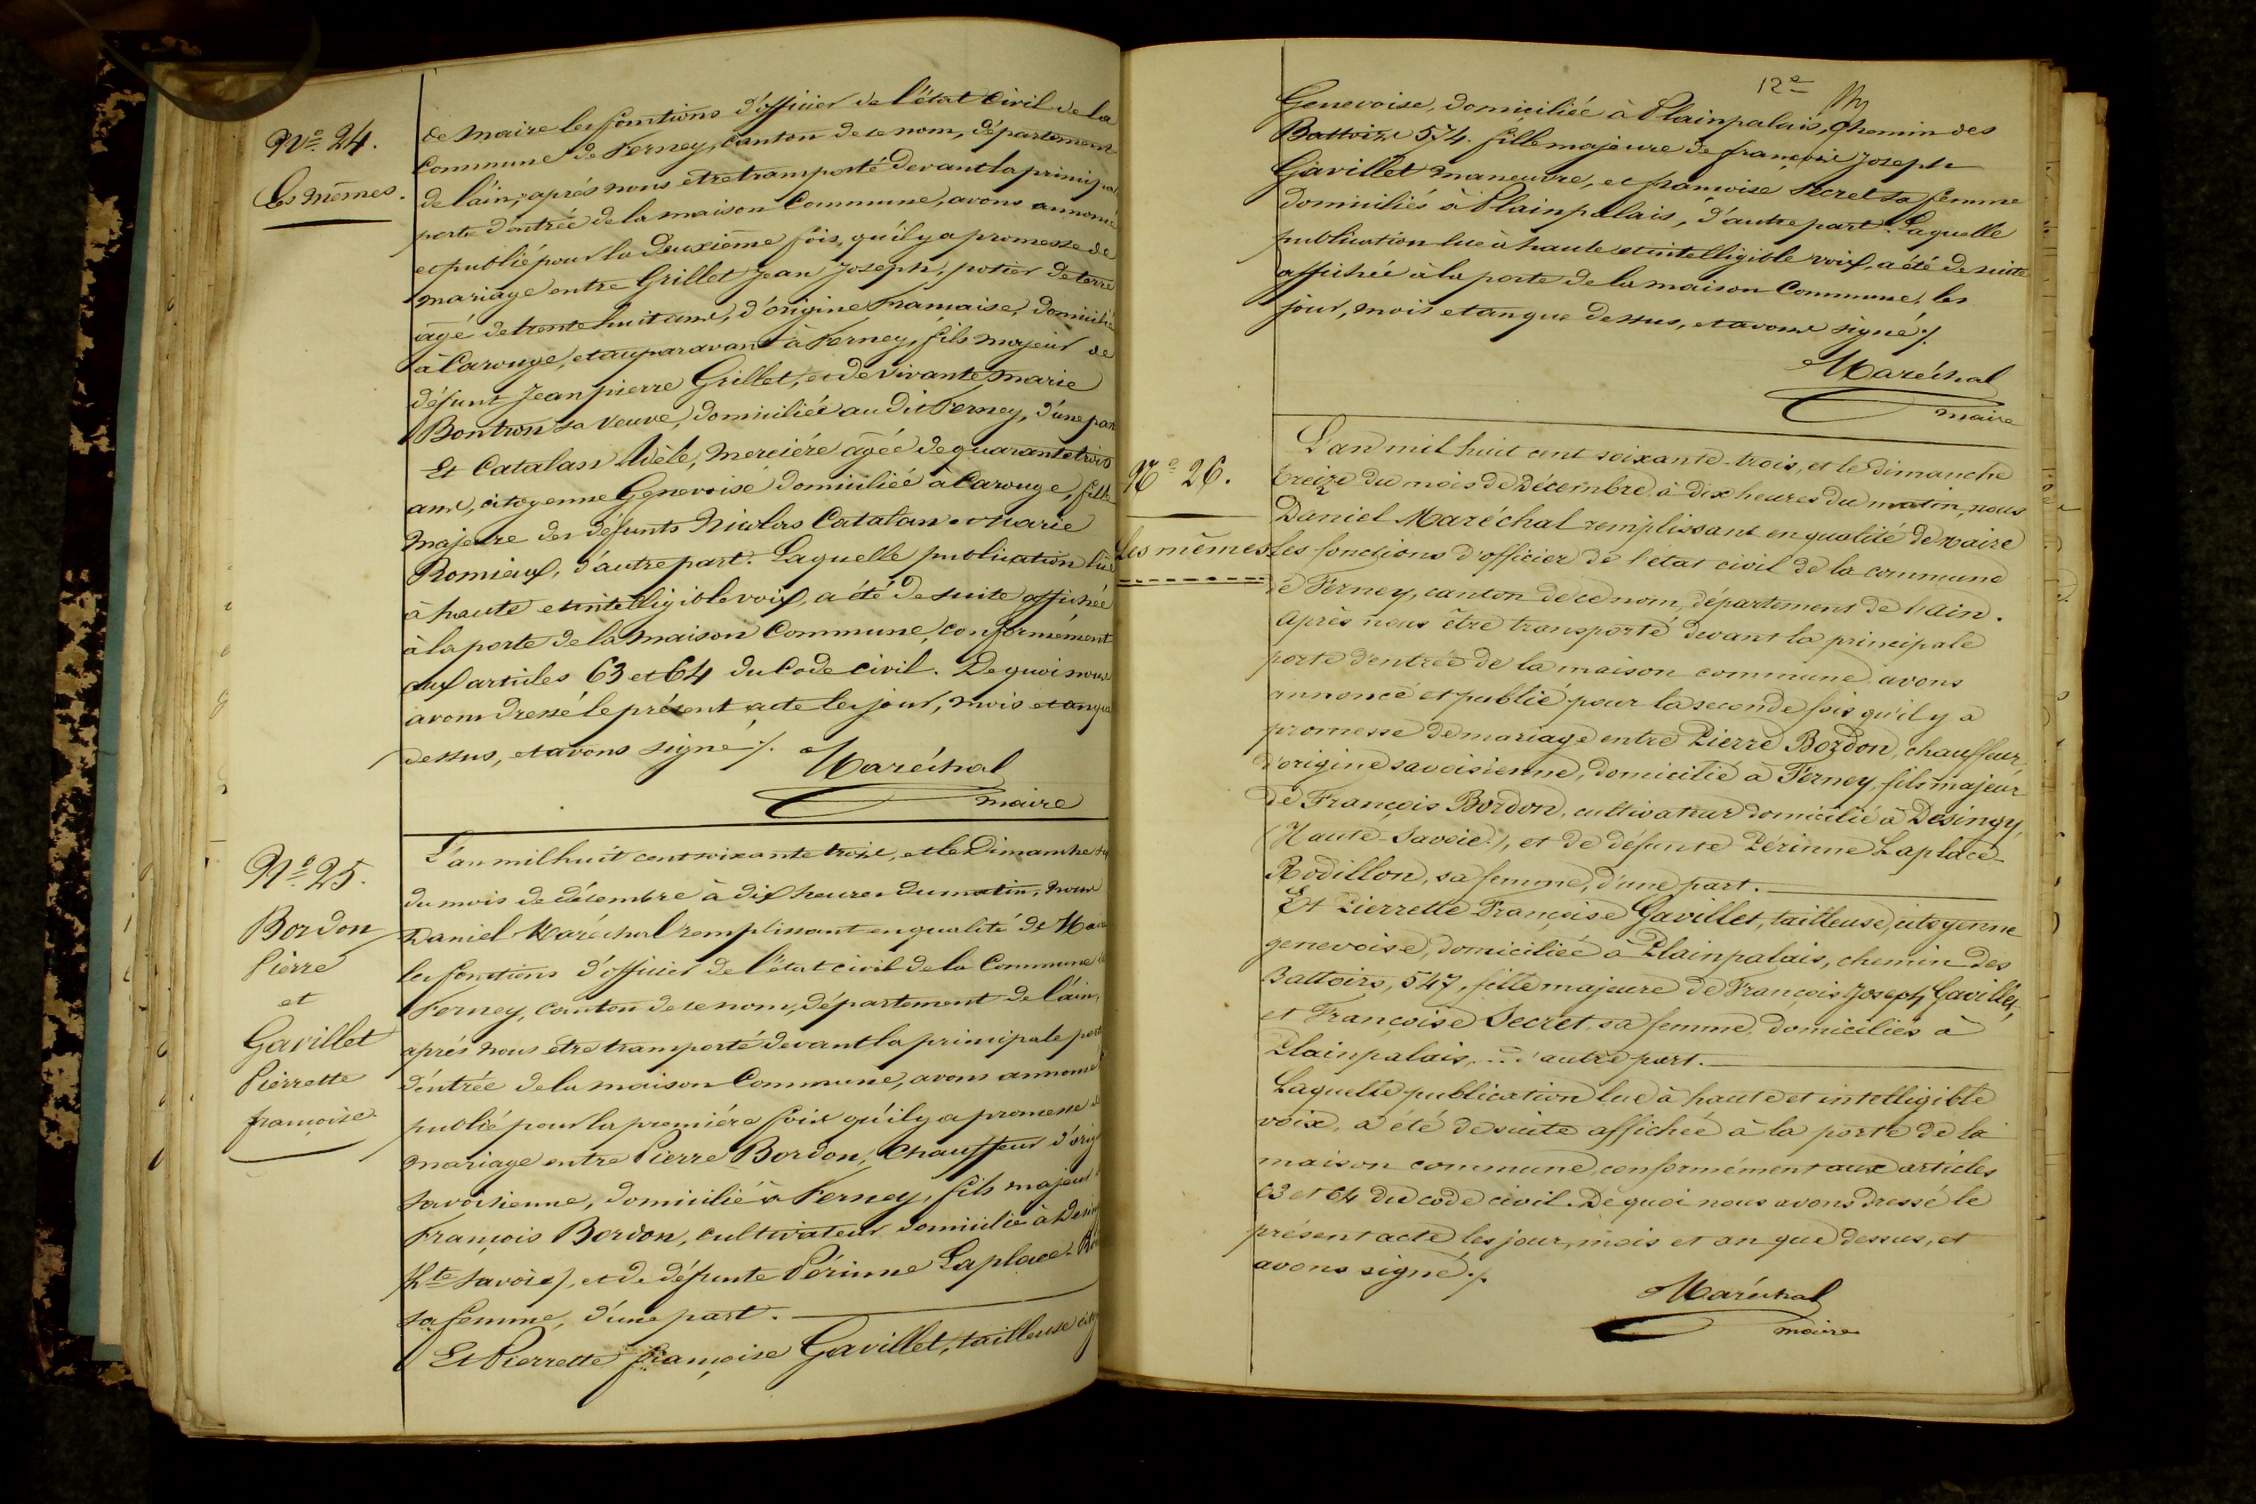 Nº 24.
Les mêmes.
de Maire les fonctions d'officier de l'état Civil de la
Commune de Ferney, Canton de ce nom, département
de l'ain, aprés nous etre transporté devant la principal
porte d'entrée de la maison Commune, avons annoncé
et publié pour la deuxième fois, qu'il y a promesse de
mariage entre Grillet Jean Joseph, potier de terre
âgé de trente huit ans, d'origine française, domicilié
à Carouge, et auparavant à Ferney, fils majeur de
défunt Jean pierre Grillet, et de vivante, marie
Bontron sa veuve, domiciliée au dit Ferney, d'une part
Et Catalan Adèle, Merciére âgée de quarante trois
ans, citoyenne Genevoise domiciliée à Carouge, fille
majeure des défunts Nicolas Catalan & Marie
Romieux, d'autre part. Laquelle publication lue
à haute et intelligible voix, a été de suite affichée
à la porte de la Maison Commune, conformément
aux articles 63 et 64 du Code Civil. De quoi nous
avons dressé le présent acte les jour, mois et an que
dessus, et avons signé ./.
Maréchal
maire
Nº 25.
Bordon
Pierre
et
Gavillet
Pierrette
françoise
L'an mil huit cent soixante trois, et le Dimanche six
du mois de décembre à dix heures du matin, nous
Daniel Maréchal remplissant en qualité de Maire
les fonctions d'officier de l'état civil de la Commune de
Ferney, Canton de ce nom, département de l'ain,
aprés nous etre transporté devant la principale porte
d'entrée de la maison Commune, avons annoncé et
publié pour la premiére fois qu'il y a promesse de
mariage entre Pierre Bordon, Chauffeur d'orig
savoisienne, domicilié à Ferney, fils majeur de
François Bordon, cultivateur domicilié à Desin
(Hte Savoie), et de défunte Périnne Laplace-Ro
sa femme, d'une part.
Et Pierrette françoise Gavillet, tailleuse cito
12e
Genevoise, domiciliée à Plainpalais, Chemin des
Battoirs 574. fille majeure de françois Joseph
Gavillet Maneuvre, et françoise Secret sa femme
domiciliés à Plainpalais, d'autre part. Laquelle
publication lue à haute et intelligible voix, a été de suite
affichée à la porte de la maison Commune, les
jour, mois et an que dessus, et avons signé ./.
Maréchal
maire
Nº 26.
Les mêmes
L'an mil huit cent soixante-trois, et le dimanche
treize du mois de Décembre à dix heures du matin, nous
Daniel Maréchal remplissant en qualité de maire
les fonctions d'officier de l'etat civil de la commune
de Ferney, canton de ce nom, département de l'Ain.
Après nous être transporté devant la principale
porte d'entrée de la maison commune avons
annoncé et publié pour la seconde fois qu'il y a
promesse de mariage entre Pierre Bordon, chauffeur,
d'origine savoisienne, domicilié à Ferney, fils majeur
de François Bordon, cultivateur domicilié à Desingy,
(Haute-Savoie), et de défunte Périnne Laplace-
Rodillon, sa femme, d'une part.
Et Pierrette Françoise Gavillet, tailleuse, citoyenne
genevoise, domiciliée à Plainpalais, chemin des
Battoirs, 547, fille majeure de François Joseph Gavillet,
et Françoise Secret, sa femme domiciliés à
Plainpalais, d'autre part.
Laquelle publication lue à haute et intelligible
voix, a été de suite affichée à la porte de la
maison commune conformément aux articles
63 et 64 du code civil. De quoi nous avons dressé le
présent acte les jour, mois et an que dessus, et
avons signé ./.
Maréchal
maire